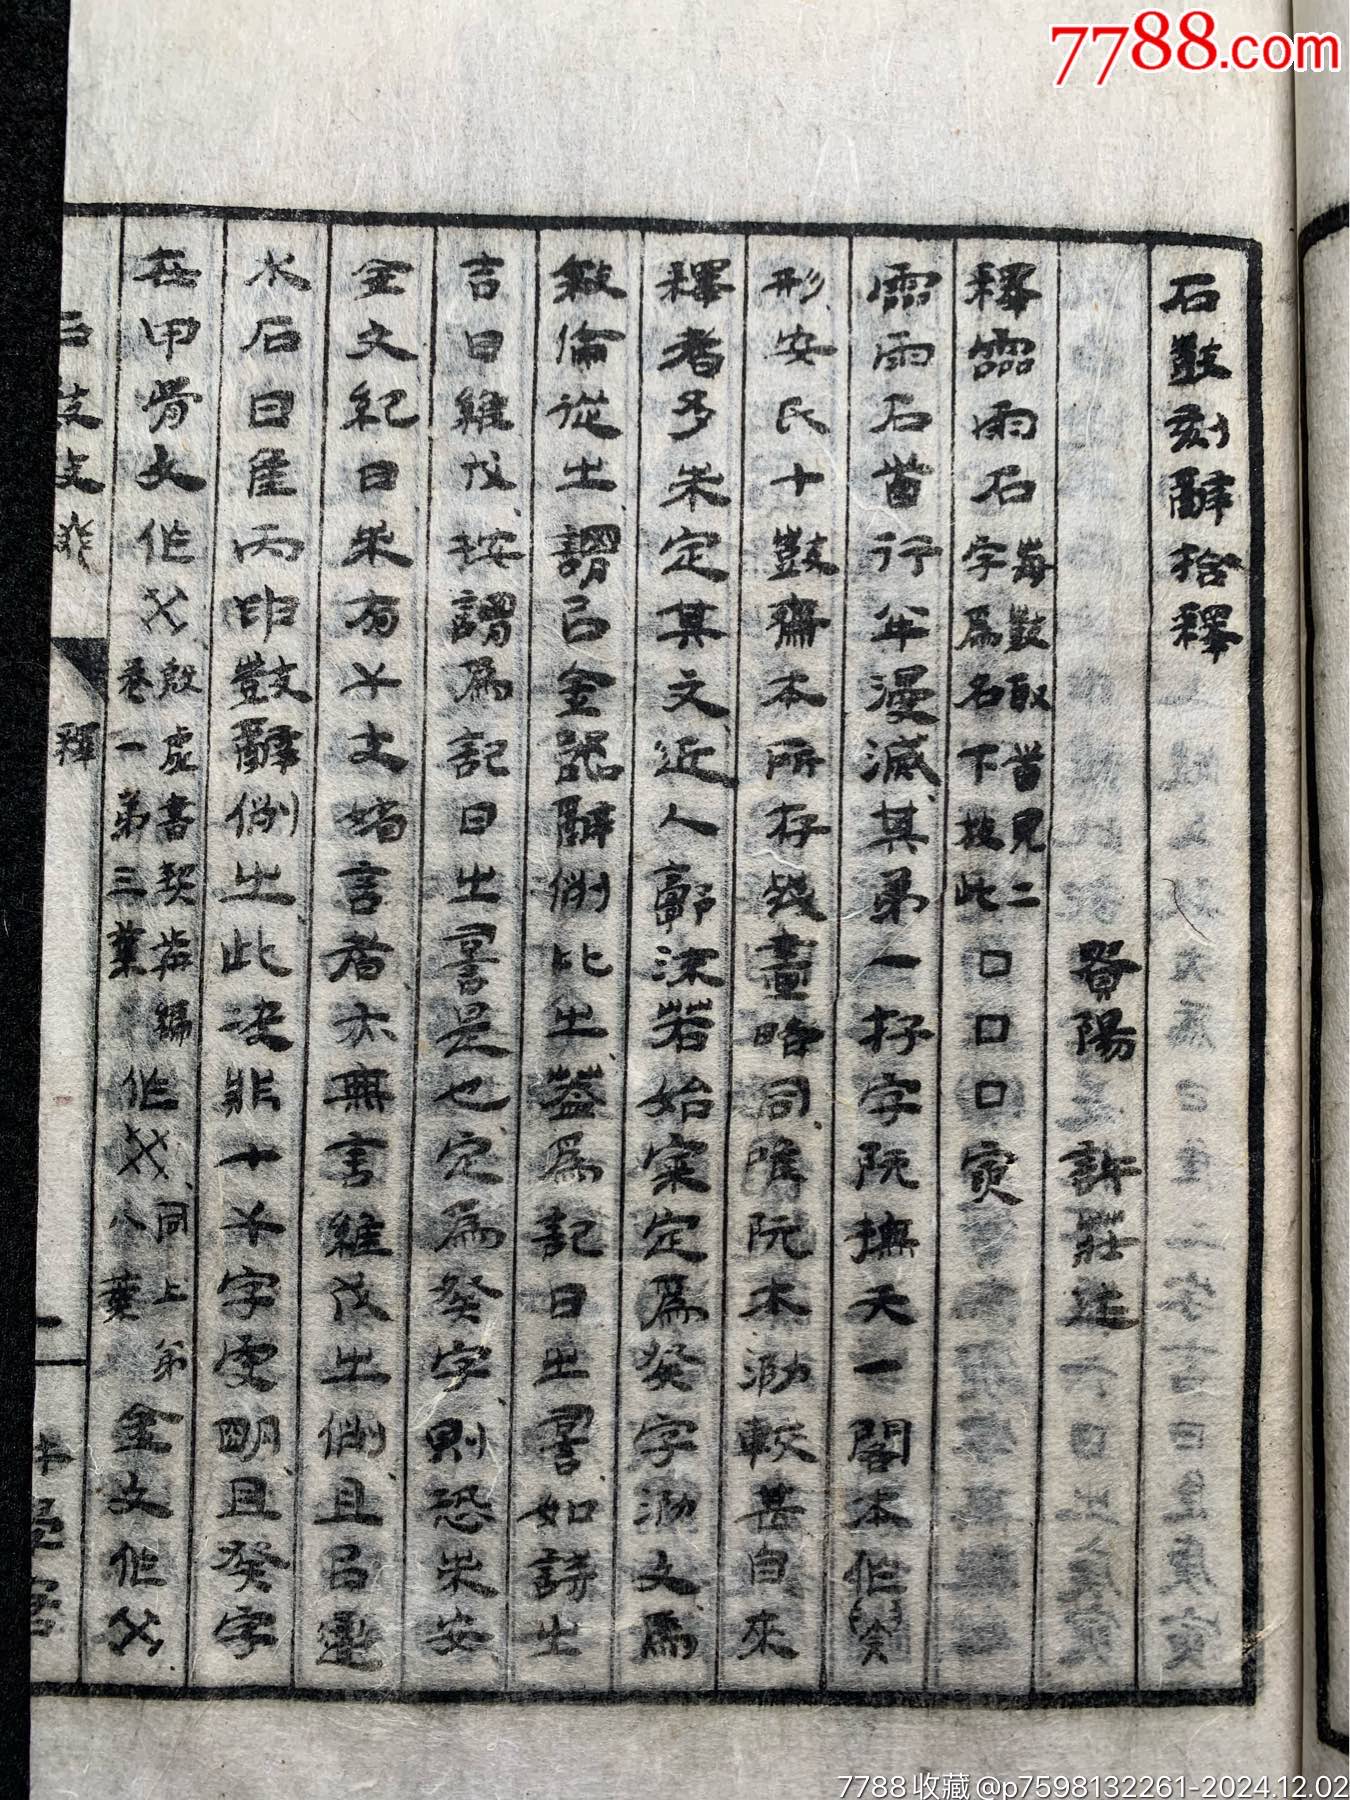 7788.com
石鼓刻辭拾釋
資陽 許莊述
釋霝雨石 每鼓取首見二字爲名下放此 □□□寅
霝雨石首行年漫滅其弟一㧳字阮撫天一閣本作
形安氏十鼓齋本所存殘畫略同唯阮本泐較甚自來
釋者多未定其文近人鄣沫若始寀定爲癸字泐文爲
敍倫從之謂㠯金器辭例比之葢爲記日之書如詩之
吉日維戊按謂爲記日之書是也定爲癸字則恐未安
金文紀日未有干支
水石曰隹丙申鼓辭例之此決非十干字更明且癸字
在甲骨文作 殷虛書契葥編卷一弟三葉 作 同上弟八葉 金文作
石鼓文
釋
一
7788收藏@p7598132261-2024.12.02